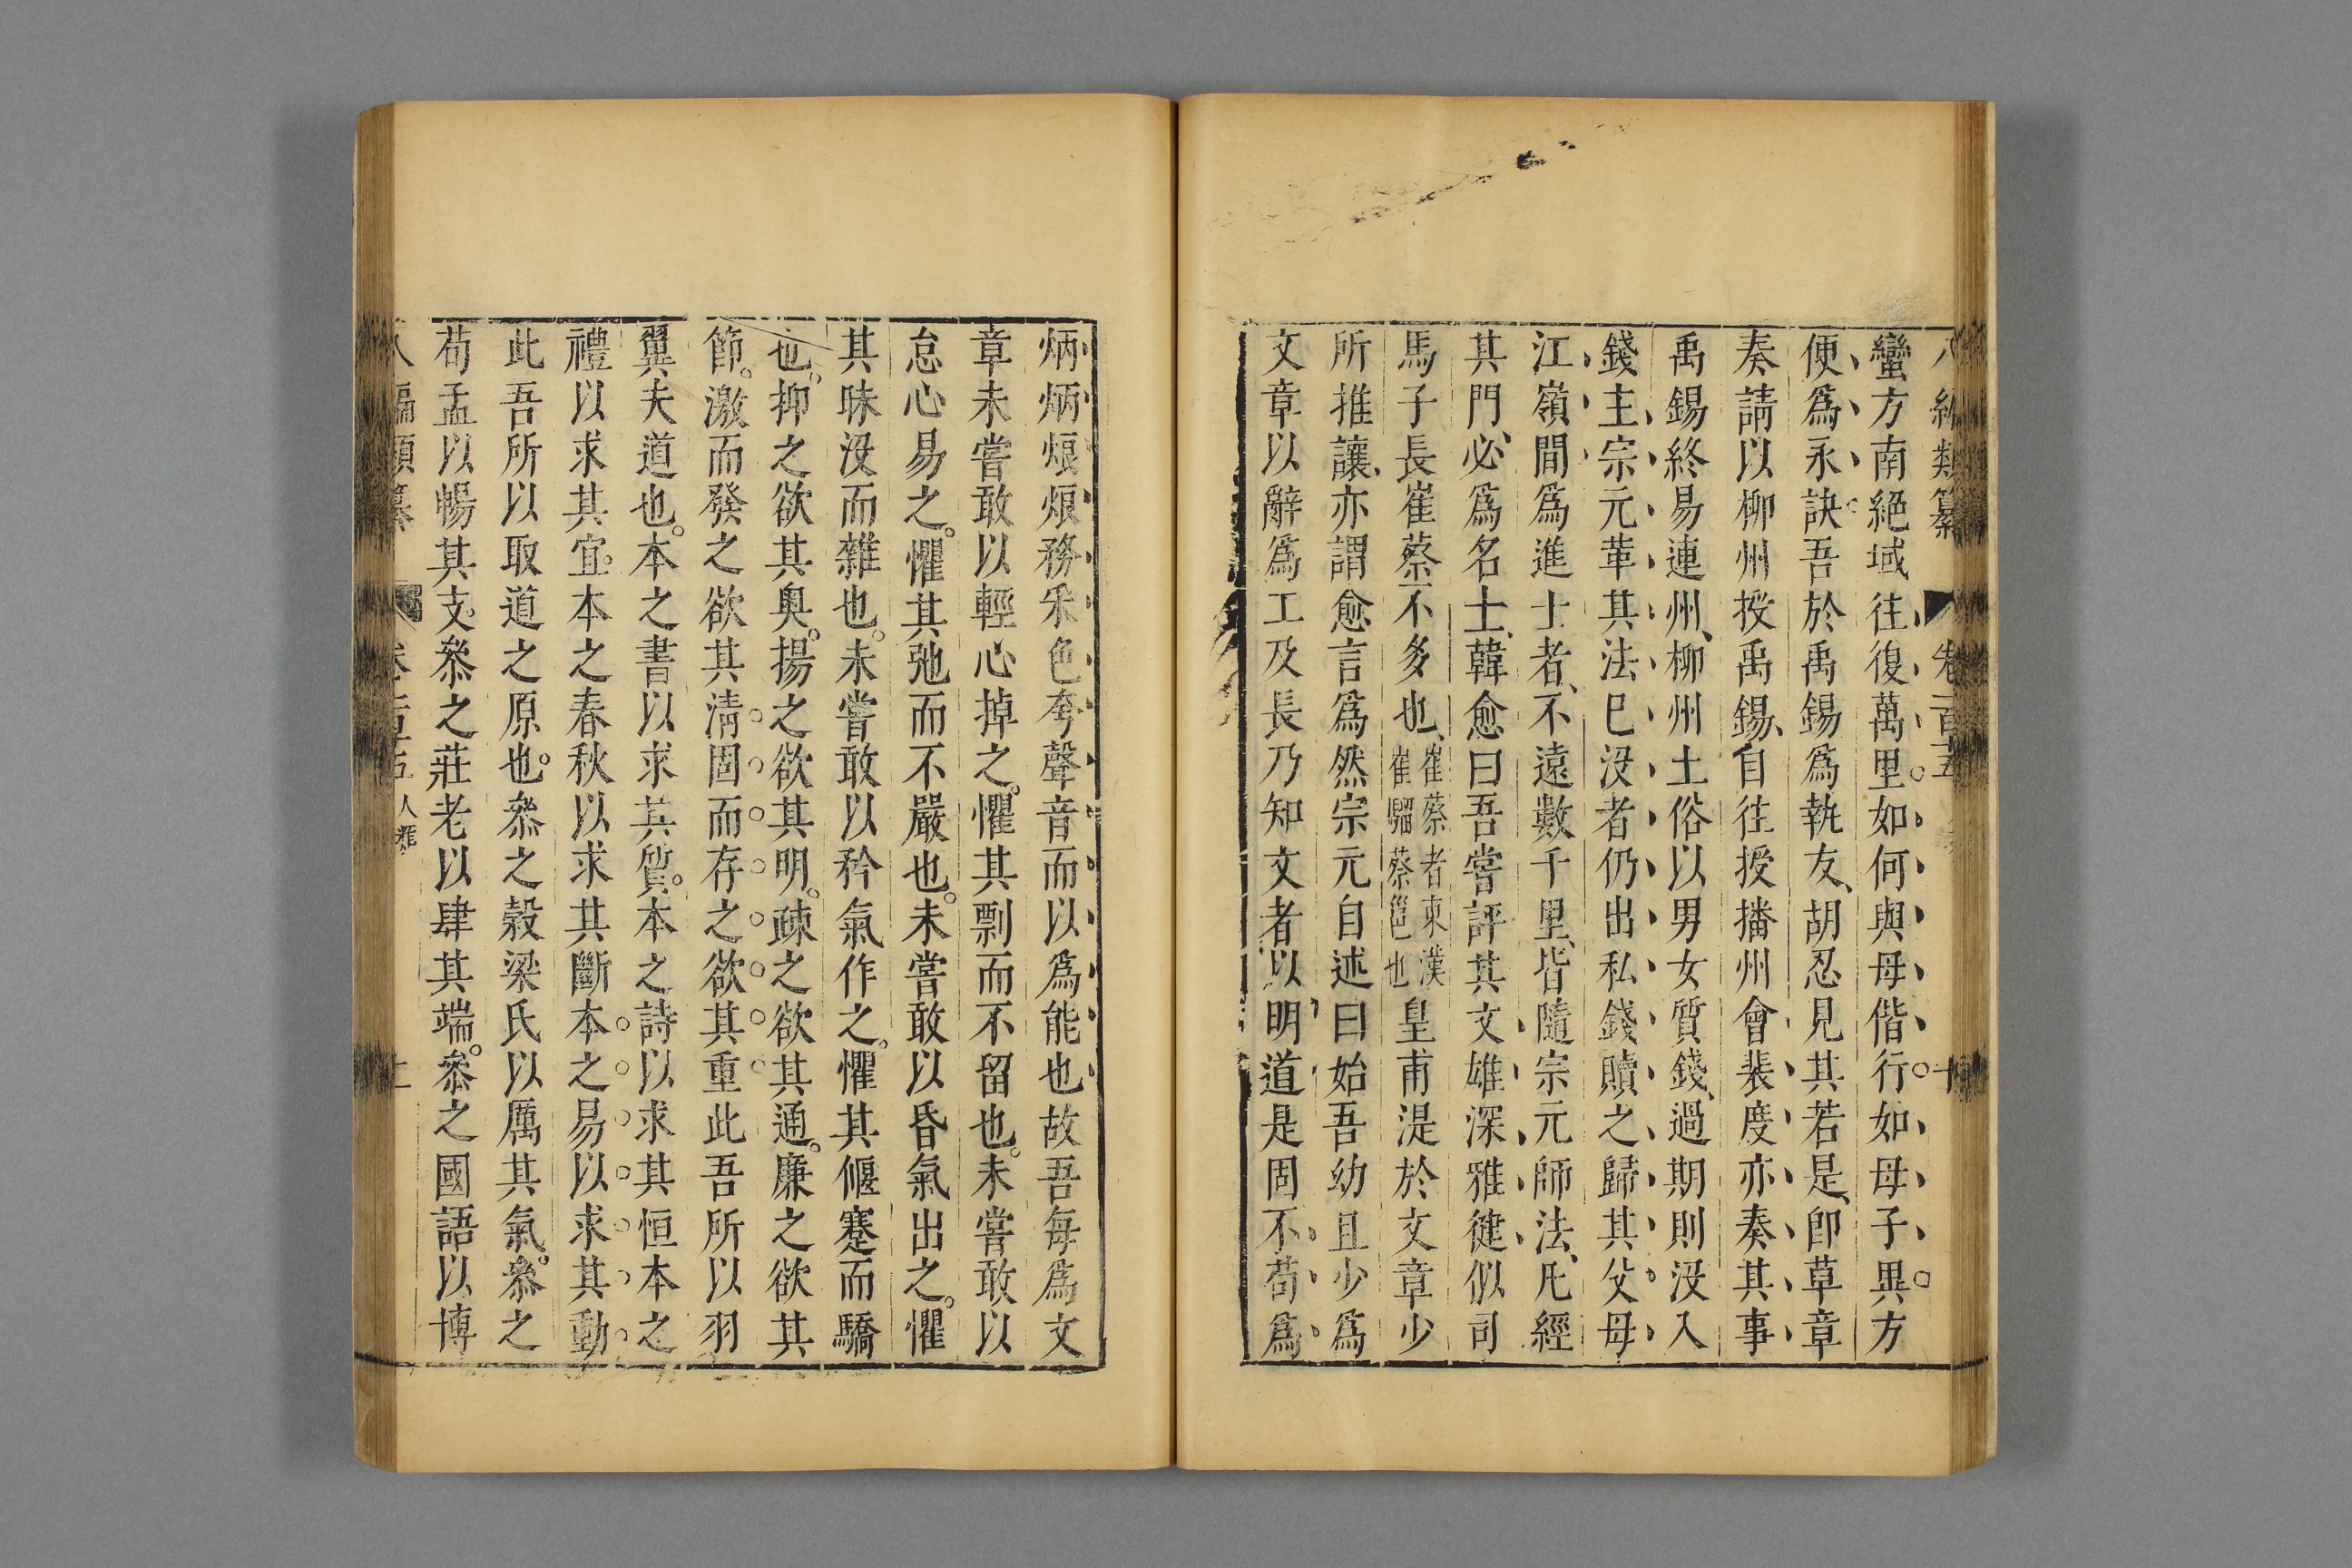 編類纂 卷一百五 十
蠻方南絕域往復萬里如何與母偕行如母子異方
便爲永訣吾於禹錫爲執友胡忍見其若是卽草章
奏請以柳州授禹錫自往授播州會裴度亦奏其事
禹錫終易連州柳州土俗以男女質錢過期則沒入
錢主宗元革其法已沒者仍出私錢贖之歸其父母
江嶺間爲進士者不遠數千里皆隨宗元師法凡經
其門必爲名士韓愈曰吾嘗評其文雄深雅健似司
馬子長崔蔡不多也崔蔡者東漢崔駰蔡邕也皇甫湜於文章少
所推讓亦謂愈言爲然宗元自述曰始吾幼且少爲
文章以辭爲工及長乃知文者以明道是固不苟爲
炳炳烺烺務釆色夸聲音而以爲能也故吾每爲文
章未嘗敢以輕心掉之懼其剽而不留也未嘗敢以
怠心易之懼其弛而不嚴也未嘗敢以昏氣出之懼
其昧沒而雜也未嘗敢以矜氣作之懼其偃蹇而驕
也抑之欲其奧揚之欲其明疎之欲其通廉之欲其
節激而發之欲其淸固而存之欲其重此吾所以羽
翼夫道也本之書以求其質本之詩以求其恒本之
禮以求其宜本之春秋以求其斷本之易以求其動
此吾所以取道之原也叅之榖梁氏以厲其氣叅之
荀孟以暢其支叅之莊老以肆其端叅之國語以博
八編類纂 卷一百五 人